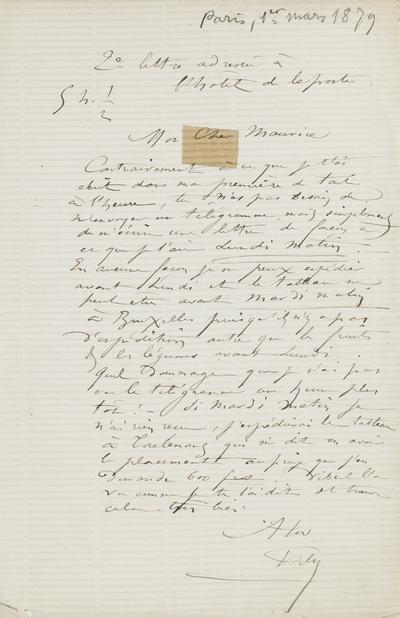 Paris, 1er mars 1879
2e lettre adressée à
l'hotel de la poste.
5 h. 1/2
Mon Cher Maurice
Contrairement à ce que je t'ai
écrit dans ma première de tout
à l'heure, tu n'as pas besoin de
m'envoyer un télégramme, mais simplement
de m'écrire une lettre de façon à
ce que je l'aie Lundi matin.
En aucune façon je ne peux expédier
avant Lundi et le tableau ne
peut être avant mardi matin
à Bruxelles puisqu'il n'y a pas
d'expédition autre que les fruits
& les légumes avant Lundi.
Quel Dommage que je n'ai pas
eu le télégramme un heure plus
tôt! - Si Mardi matin je
n'ai rien reçu, j'expédierai le tableau
à qui m'a dit en avoir
le placement au prix que j'en
demande 600 frs. l'a
vu comme je te l'ai dit et trouve
cela très bien.
A toi